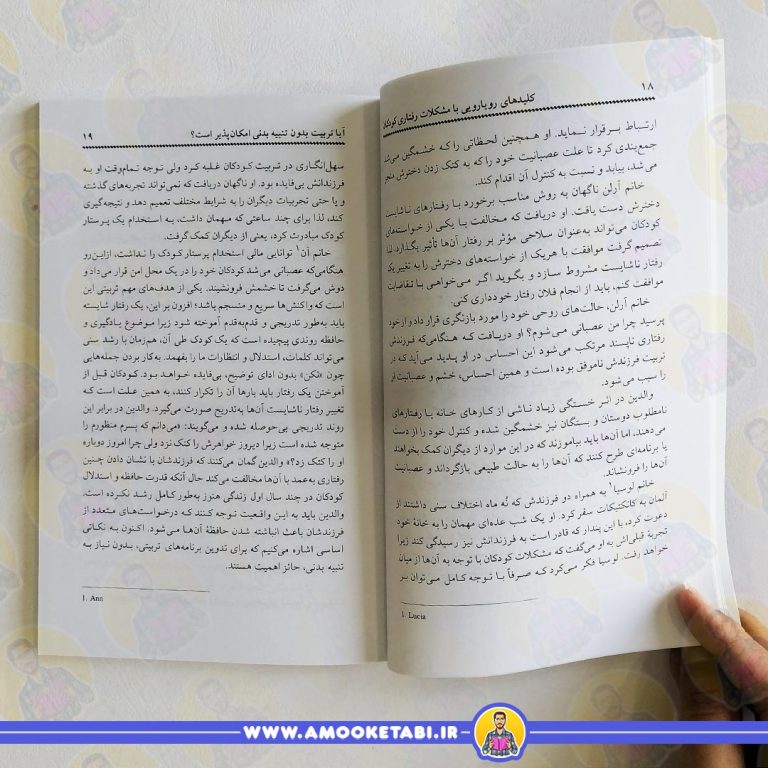 ۱۸
کلیدهای رویارویی با مشکلات رفتاری کودکان
ارتباط برقرار نماید. او همچنین لحظاتی را که خشمگین می‌شد
جمع‌بندی کرد تا علت عصبانیت خود را که به کتک زدن دخترش منجر
می‌شد، بیابد و نسبت به کنترل آن اقدام کند.
خانم آرلن ناگهان به روش مناسب برخورد با رفتارهای ناشایست
دخترش دست یافت. او دریافت که مخالفت با یکی از خواسته‌های
کودکان می‌تواند به‌عنوان سلاحی مؤثر بر رفتار آن‌ها تأثیر بگذارد. لذا
تصمیم گرفت موافقت با هریک از خواسته‌های دخترش را به تغییر یک
رفتار ناشایست مشروط سازد و بگوید اگر می‌خواهی با تقاضایت
موافقت کنم، باید از انجام فلان رفتار خودداری کنی.
خانم آرلن، حالت‌های روحی خود را مورد بازنگری قرار داد و از خود
پرسید چرا من عصبانی می‌شوم؟ او دریافت که هنگامی‌که فرزندش
رفتاری ناپسند مرتکب می‌شود این احساس در او پدید می‌آید که در
تربیت فرزندش ناموفق بوده است و همین احساس، خشم و عصبانیت او
را سبب می‌شود.
والدین در اثر خستگی زیاد ناشی از کارهای خانه یا رفتارهای
نامطلوب دوستان و بستگان نیز خشمگین شده و کنترل خود را از دست
می‌دهند، اما آن‌ها باید بیاموزند که در این موارد از دیگران کمک بخواهند
یا برنامه‌ای طرح کنند که آن‌ها را به حالت طبیعی بازگرداند و عصبانیت
آن‌ها را فرونشاند.
خانم لوسیا۱ به همراه دو فرزندش که نُه ماه اختلاف سنی داشتند از
آلمان به کانکتیکات سفر کرد. او یک شب عده‌ای مهمان را به خانهٔ خود
دعوت کرد، با این پندار که قادر است به فرزندانش نیز رسیدگی کند زیرا
تجربهٔ قبلی‌اش به او می‌گفت که مشکلات کودکان با توجه به آن‌ها از میان
خواهد رفت. لوسیا فکر می‌کرد که صرفاً با توجه کامل می‌توان بر
1. Lucia
آیا تربیت بدون تنبیه بدنی امکان‌پذیر است؟
۱۹
سهل‌انگاری در تربیت کودکان غلبه کرد ولی توجه تمام‌وقت او به
فرزندانش بی‌فایده بود. او ناگهان دریافت که نمی‌تواند تجربه‌های گذشته
و یا حتی تجربیات دیگران را به شرایط مختلف تعمیم دهد و نتیجه‌گیری
کند، لذا برای چند ساعتی که میهمان داشت، به استخدام یک پرستار
کودک مبادرت کرد، یعنی از دیگران کمک گرفت.
خانم آن۱ توانایی مالی استخدام پرستار کودک را نداشت، ازاین‌رو
هنگامی‌که عصبانی می‌شد کودکان خود را در یک محل امن قرار می‌داد و
دوش می‌گرفت تا خشمش فرونشیند. یکی از هدف‌های مهم تربیتی این
است که واکنش‌ها سریع و منسجم باشد؛ افزون بر این، یک رفتار شایسته
باید به‌طور تدریجی و قدم‌به‌قدم آموخته شود زیرا موضوع یادگیری و
حافظه روندی پیچیده است که یک کودک طی آن، هم‌زمان با رشد سنی
می‌تواند کلمات، استدلال و انتظارات ما را بفهمد. به‌کار بردن جمله‌هایی
چون «نکن» بدون ادای توضیح، بی‌فایده خواهد بود. کودکان قبل از
آموختن یک رفتار باید بارها آن را تکرار کنند، به همین علت است که
تغییر رفتار ناشایست آن‌ها به‌تدریج صورت می‌گیرد. والدین در برابر این
روند تدریجی بی‌حوصله شده و می‌گویند: «می‌دانم که پسرم منظورم را
متوجه شده است زیرا دیروز خواهرش را کتک نزد ولی چرا امروز دوباره
او را کتک زد؟» والدین گمان می‌کنند که فرزندشان با نشان دادن چنین
رفتاری به‌عمد با آن‌ها مخالفت می‌کند حال آنکه قدرت حافظه و استدلال
کودکان در چند سال اول زندگی هنوز به‌طور کامل رشد نکرده است.
والدین باید به این واقعیت توجه کنند که درخواست‌های متعدد از
فرزندشان باعث انباشته شدن حافظهٔ آن‌ها می‌شود. اکنون به نکاتی
اساسی اشاره می‌کنیم که برای تدوین برنامه‌های تربیتی، بدون نیاز به
تنبیه بدنی، حائز اهمیت هستند.
1. Ann
WWW.AMOOKETABI.IR